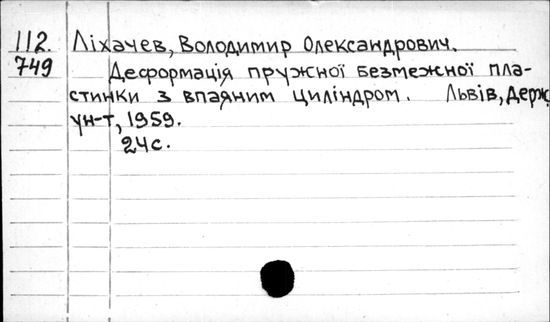 112. Ліхачев, Володимир Олександрович.
749 Деформація пружної безмежної пла-
стинки з впаяним циліндром. Львів, Держ.
ун-т, 1959.
24с.